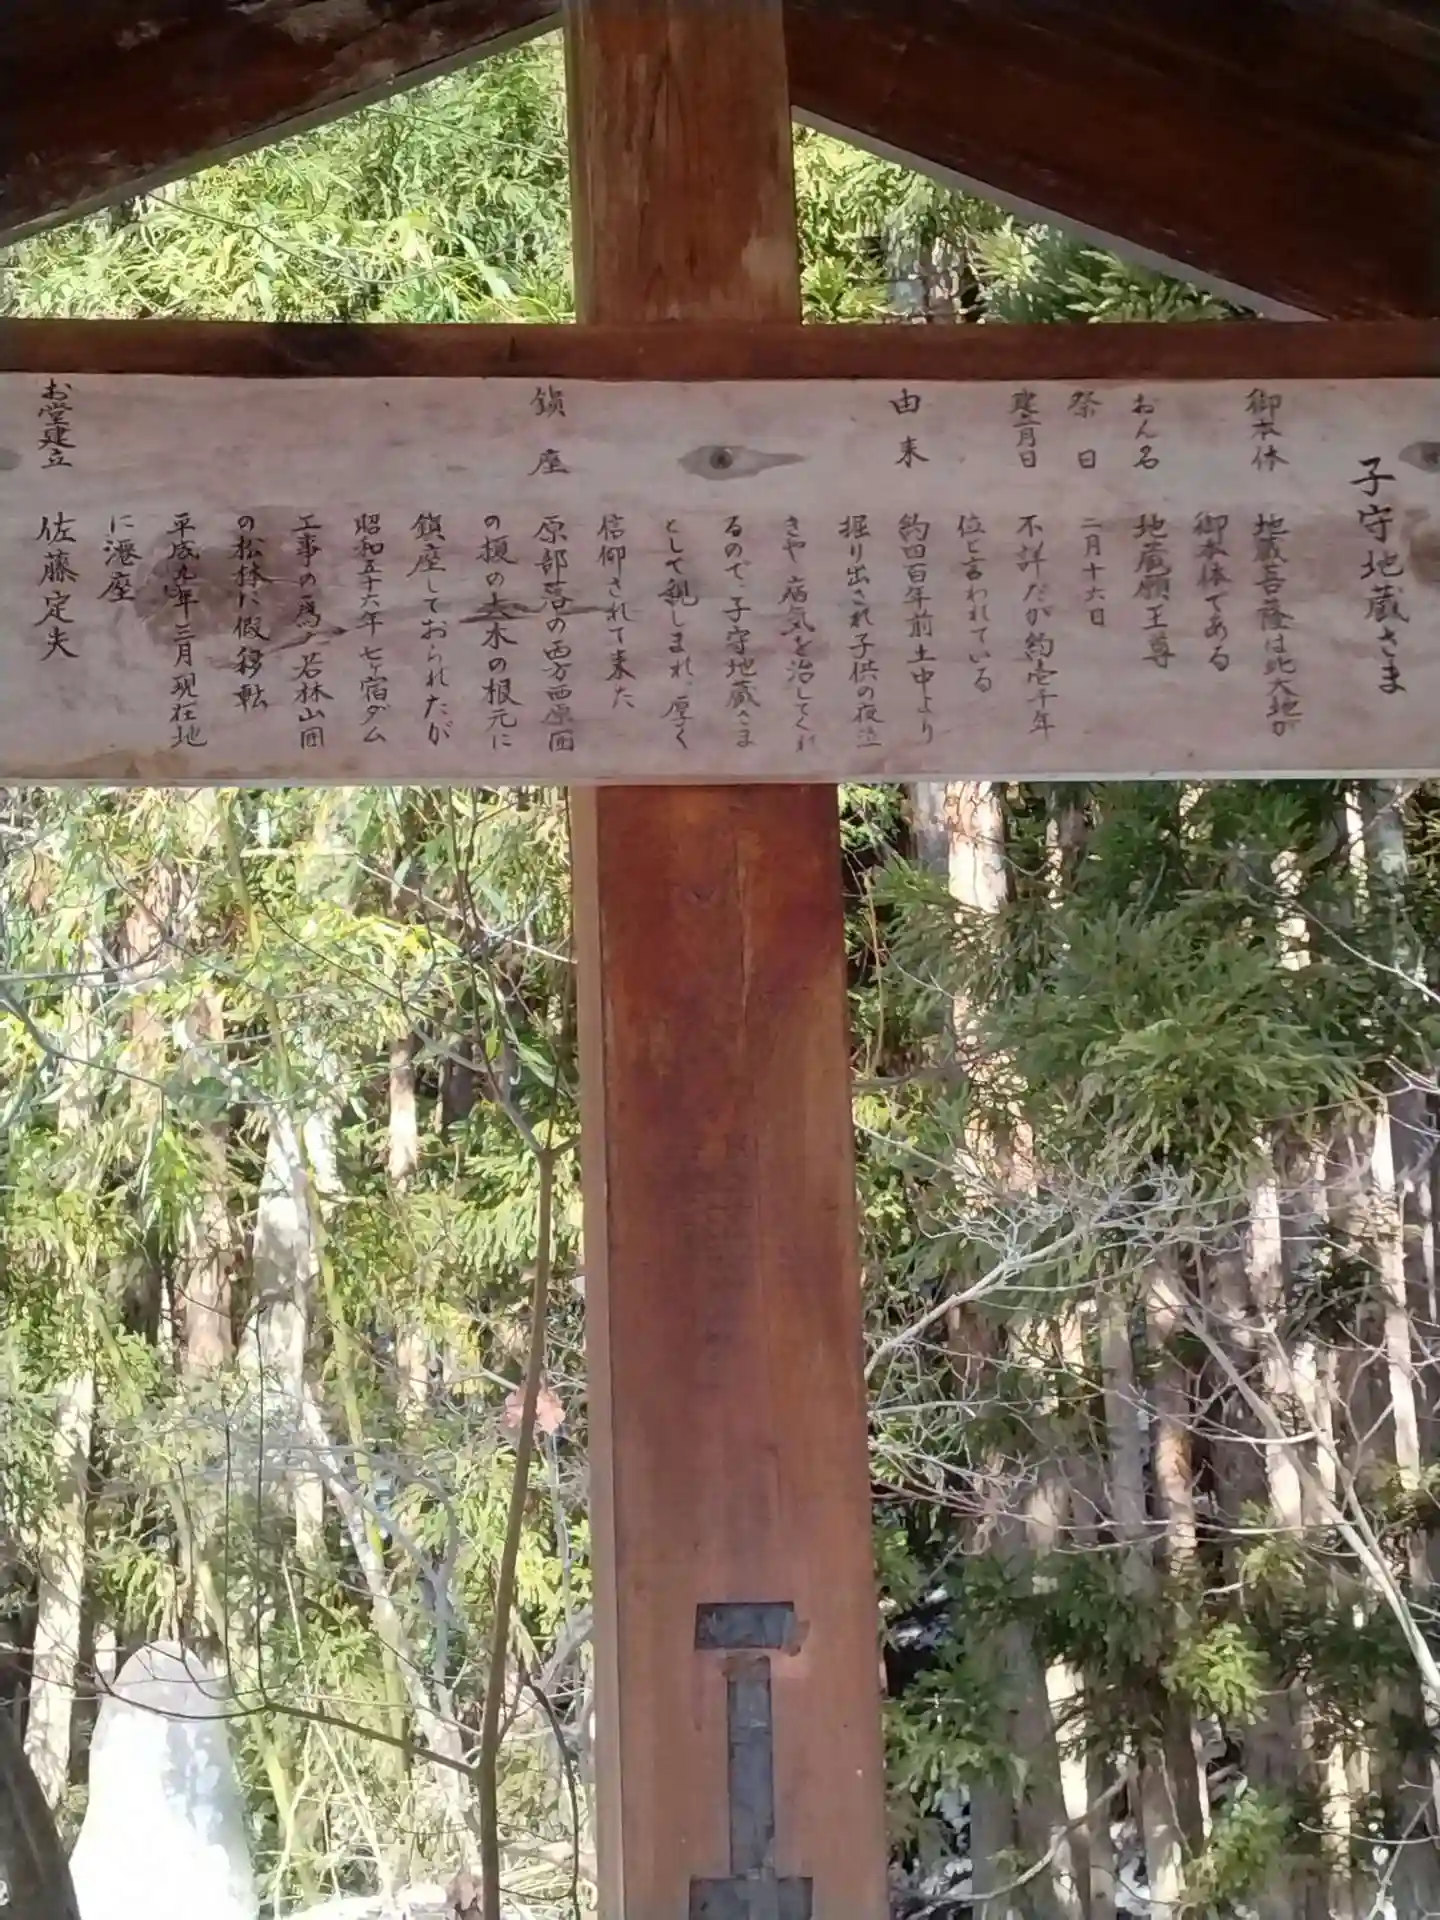 子守地蔵さま
御本体 地蔵菩薩は此大地が
御本体である
おん名 地蔵願王尊
祭日 二月十六日
建立月日 不詳だが約壱千年
位と言われている
由来 約四百年前土中より
掘り出され子供の夜泣
きや病気を治してくれ
るので、子守地蔵さま
として親しまれ、厚く
信仰されて来た
鎮座 原部落の西方西原囲
の榎の大木の根元に
鎮座しておられたが
昭和五十六年七ヶ宿ダム
工事の為、若林山囲
の松林に假移転
平成九年三月現在地
に遷座
お堂建立 佐藤定夫